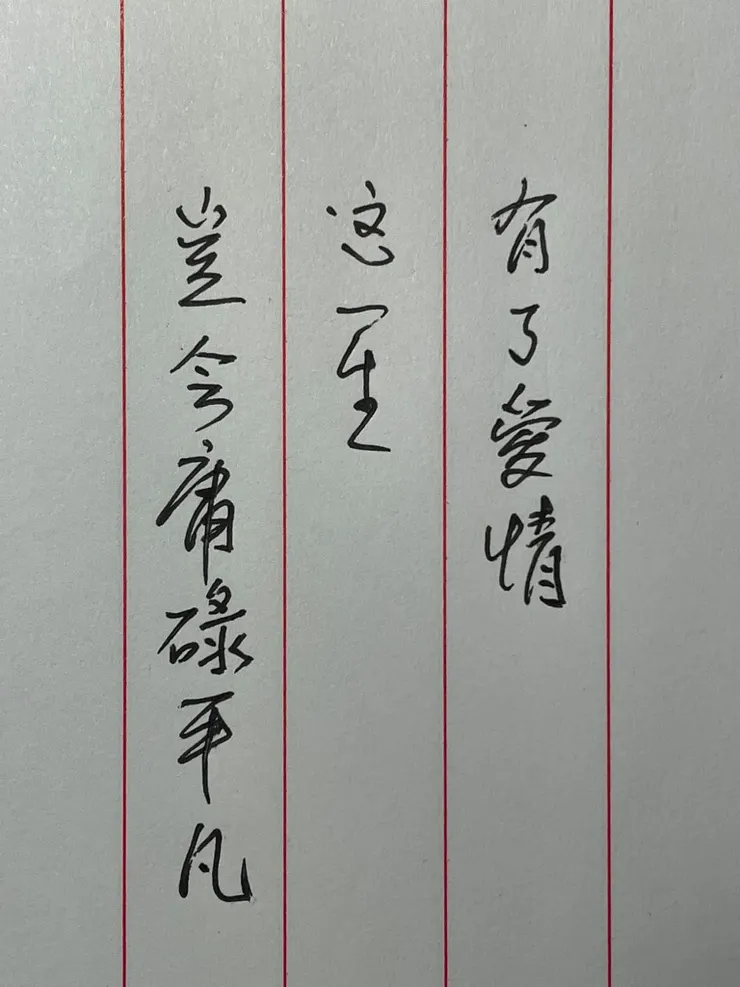 有了愛情
这一生
岂会庸碌平凡